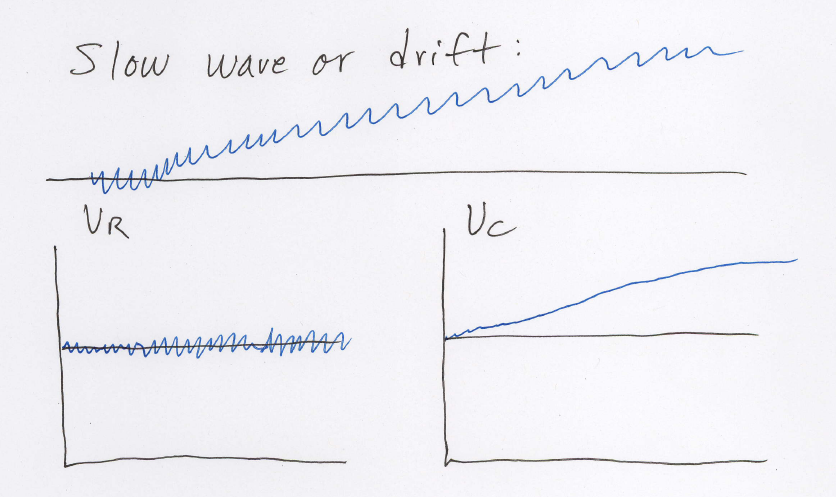 Slow wave or drift:
VR
VC